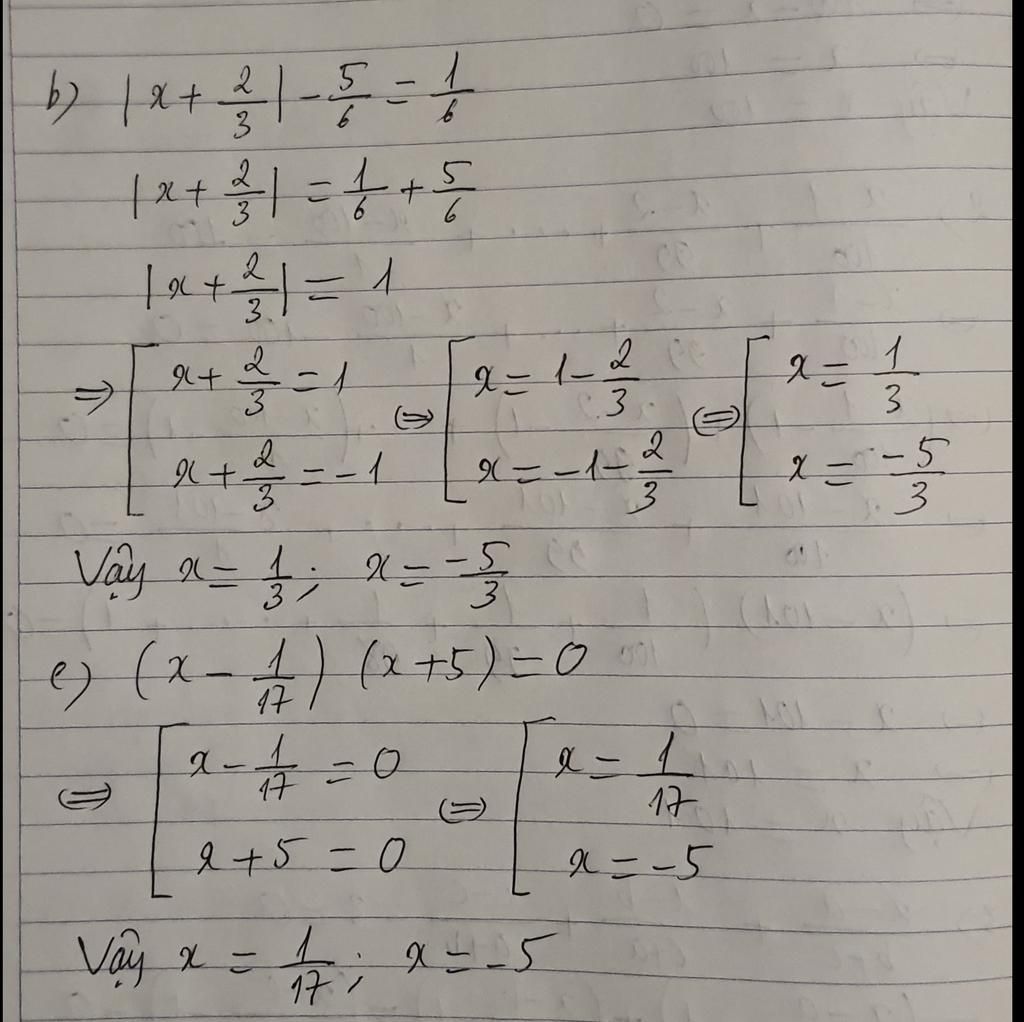 b) |x + 2/3| - 5/6 = 1/6
|x + 2/3| = 1/6 + 5/6
|x + 2/3| = 1
⇒ [ x + 2/3 = 1 ⇔ [ x = 1 - 2/3 ⇔ [ x = 1/3
x + 2/3 = -1 x = -1 - 2/3 x = -5/3
Vậy x = 1/3; x = -5/3
e) (x - 1/17) (x + 5) = 0
⇔ [ x - 1/17 = 0 ⇔ [ x = 1/17
x + 5 = 0 x = -5
Vậy x = 1/17; x = -5